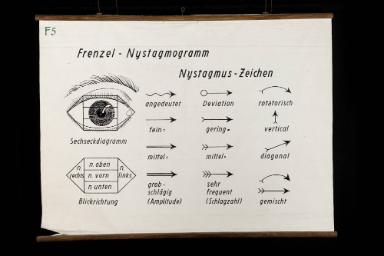 F5
Frenzel - Nystagmogramm
Nystagmus - Zeichen
angedeutet
Deviation
rotatorisch
fein -
gering -
vertical
Sechseckdiagramm
mittel -
mittel -
diagonal
n. oben
n. rechts
n. vorn
n. links
n. unten
Blickrichtung
grob-
schlägig
(Amplitude)
sehr
frequent
(Schlagzahl)
gemischt